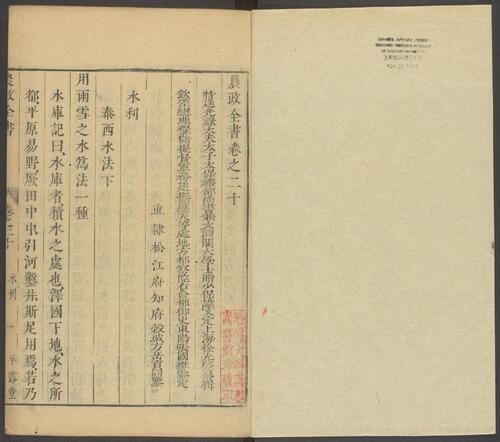 農政全書卷之二十
特進光祿大夫太子太保禮部尚書兼文淵閣大學士贈少保諡文定上海徐光啓纂輯
欽差總理糧儲提督軍務巡撫應天等處地方都察院右僉都御史東陽張國維鑒定
直隸松江府知府穀城方岳貢同鑒
水利
泰西水法下
用雨雪之水爲法一種
水庫記曰水庫者積水之處也澤國下地水之所
都平原易野厥田中中引河鑿井斯足用焉若乃
農政全書
卷之二十
水利
一
平露堂
YAMAMOTO